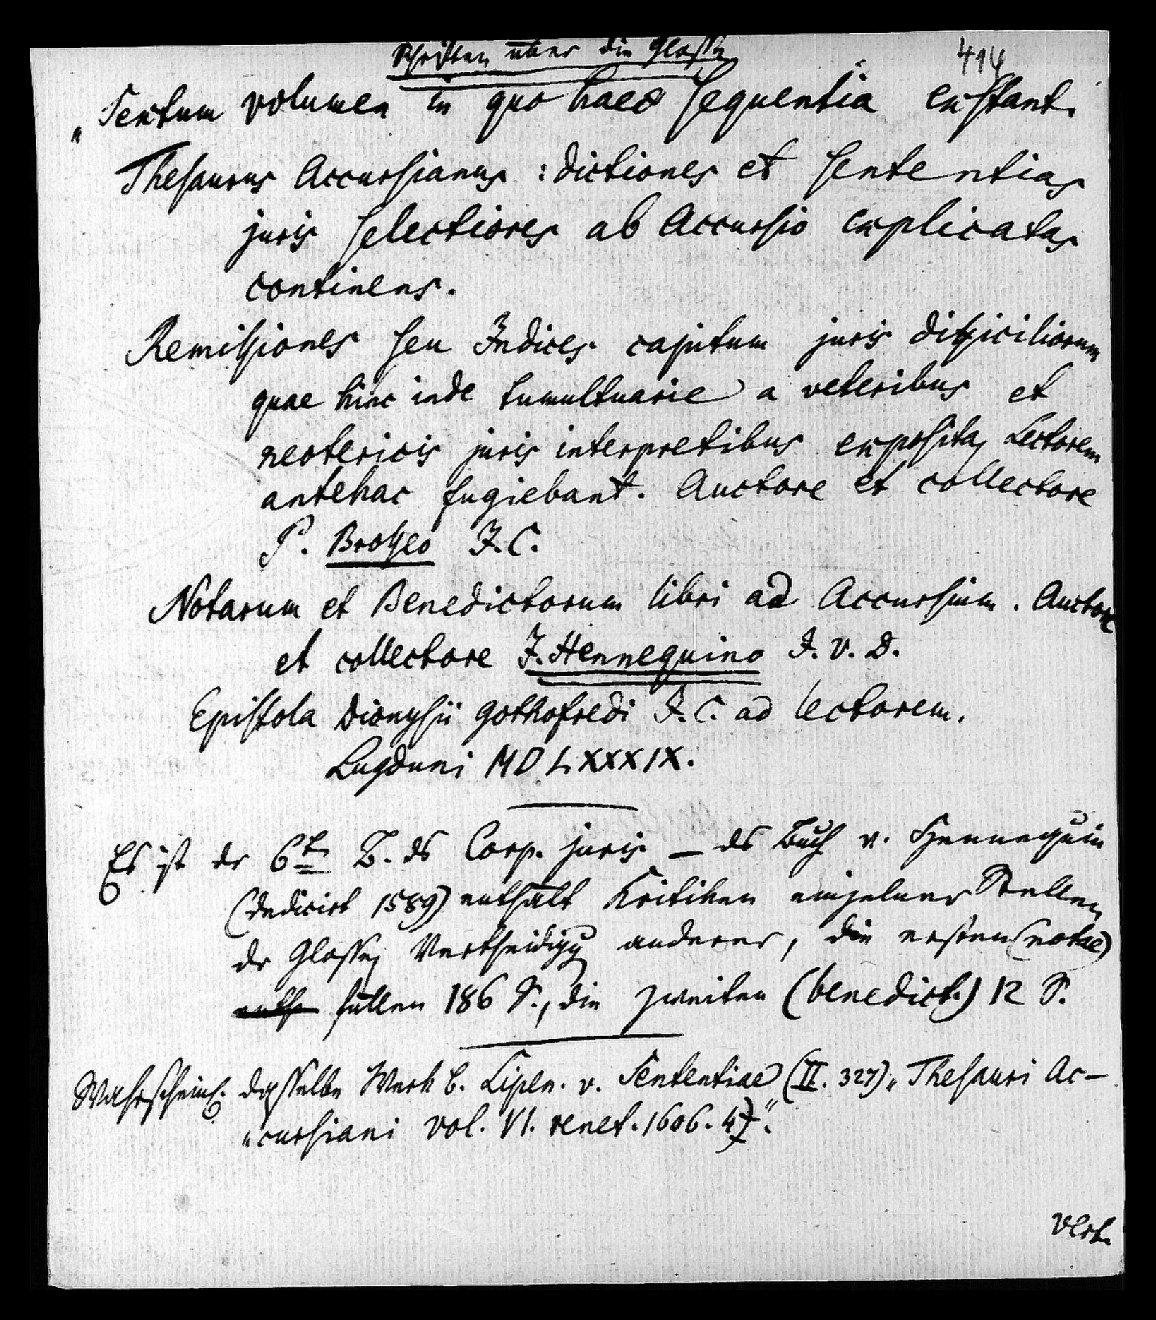 Schriften über die Glosse
414
„Sextum volumen in quo haec sequentia exstant.
Thesaurus Accursianus : dictiones et sententias
juris selectiores ab Accursio explicatas
continens.
Remissiones seu Indices capitum juris difficiliorum
quae hinc inde tumultuarie a veteribus et
neotericis juris interpretibus exposita, Lectorem
antehac fugiebant. Auctore et collectore
P. Brosseo J. C.
Notarum et Benedictorum libri ad Accursium. Auctore
et collectore J. Hennequino J. V. D.
Epistola Dionysii Gothofredi J. C. ad lectorem.
Lugduni MDLXXXIX.
Es ist dr 6te B. ds Corp. juris – ds Buch v. Hennequin
(dedicirt 1589) enthält Kritiken einzelner Stellen
dr Glosse, Vertheidigg anderer, die ersten (notae)
füllen 186 S., die zweiten (benedict.) 12 S.
Wahrscheinl. dasselbe Werk b. Lipen. v. Sententiae (II. 327) „Thesauri Ac-
„cursiani vol. VI. venet. 1606. 4)“.